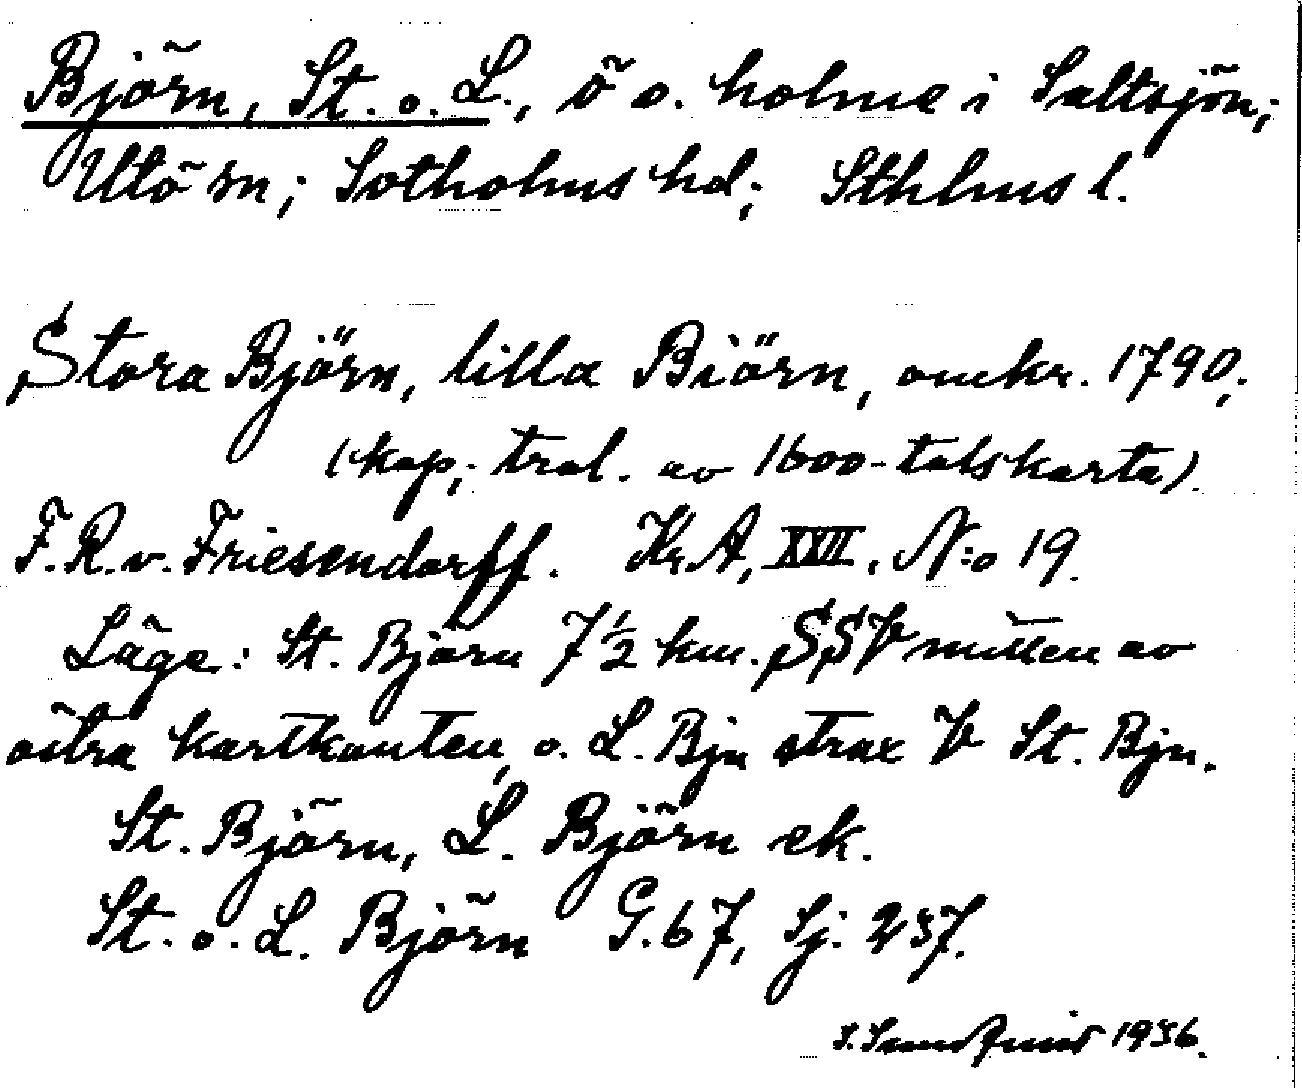 Björn, St. o. L., ö o. holme i Saltsjön;
Utö sn; Sotholms hd; Sthlms l.
Stora Björn, lilla Biörn, omkr. 1790;
(kop; trol. av 1600-talskarta).
F. R. v. Friesendorff. Kr. A, XXII, N:o 19.
Läge: St. Björn 7½ km. SSV mitten av
östra kartkanten, o. L. Bjn strax V St. Bjn.
St. Björn, L. Björn ek.
St. o. L. Björn G. 67, Sj. 237.
1936.